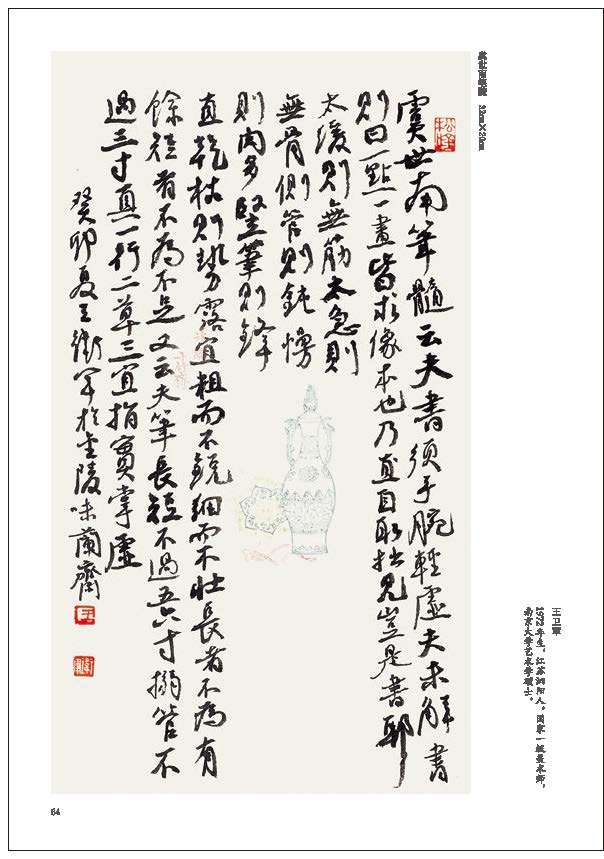 虞世南笔髓 32cm×20cm
虞世南筆髓云夫書須手腕輕虛夫未解書
則曰一點一畫皆求像本也乃直自取拙見豈是書耶
太緩則無筋太急則
無骨側管則鈍慢
則肉多竪筆則鋒
直乾枯則勢露宜粗而不銳細而不壯長者不為有
餘短者不為不足又云夫筆長短不過五六寸搦管不
過三寸真一行二草三宜指實掌虛
癸卯夏王衛軍於金陵味蘭齋
王
王卫军
1972年生，江苏泗阳人。国家一级美术师，
南京大学艺术学硕士。
64